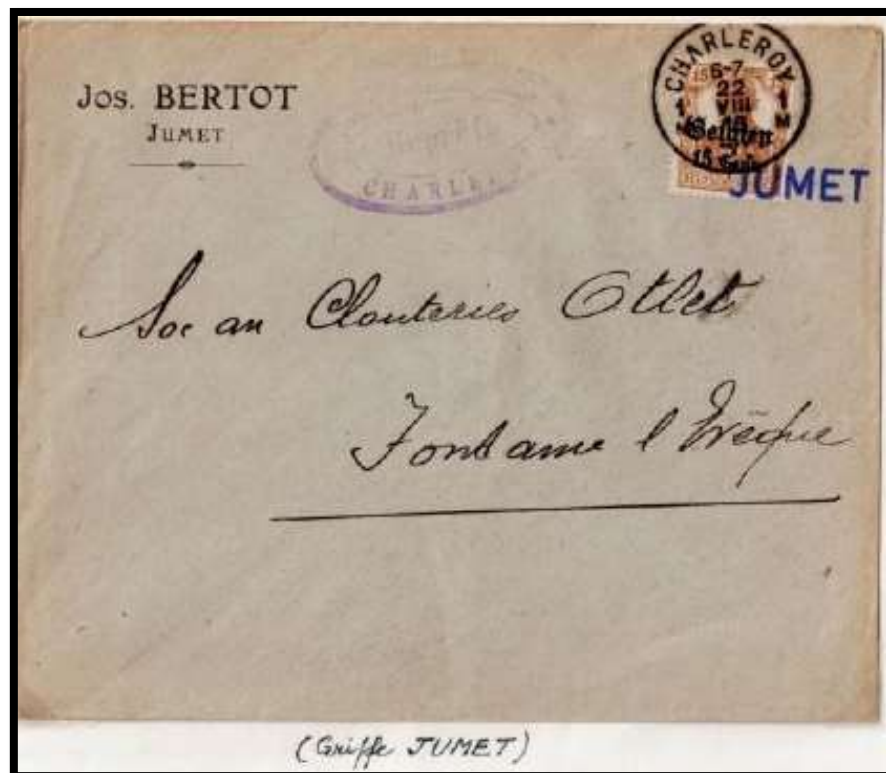 Jos. BERTOT
JUMET
CHARLE
CHARLEROY
6-7
22
VIII
1 1
M M
Belgien
15 Cent.
JUMET
Soc an Clouteries Otlet
Fontaine l'Evêque
(Griffe JUMET)